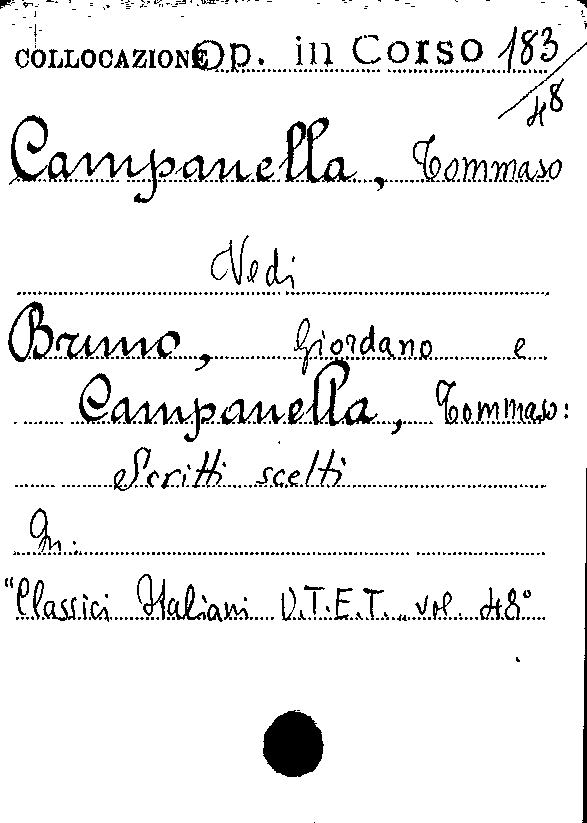 COLLOCAZIONE Op. in Corso 183/48
Campanella, Tommaso
Vedi
Bruno, Giordano e
Campanella, Tommaso:
Scritti scelti
In:
"Classici Italiani U.T.E.T." vol. 48°